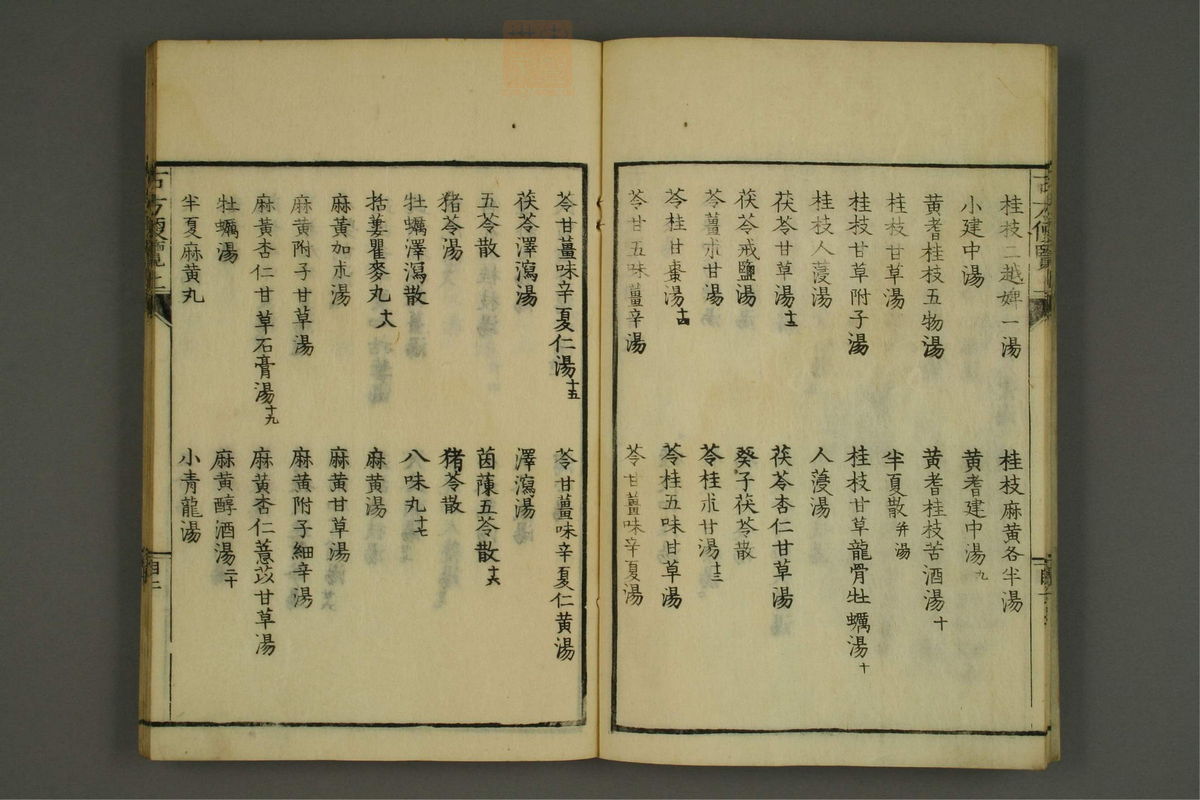 桂枝二越婢一湯
桂枝麻黄各半湯
小建中湯
黄耆建中湯九
黄耆桂枝五物湯
黄耆桂枝苦酒湯十
桂枝甘草湯
半夏散并湯
桂枝甘草附子湯
桂枝甘草龍骨牡蠣湯十
桂枝人薓湯
人薓湯
茯苓甘草湯十二
茯苓杏仁甘草湯
茯苓戎鹽湯
癸子茯苓散
苓薑朮甘湯
苓桂朮甘湯十三
苓桂甘棗湯十四
苓桂五味甘草湯
苓甘五味薑辛湯
苓甘薑味辛夏湯
苓甘薑味辛夏仁湯十五
苓甘薑味辛夏仁黄湯
茯苓澤瀉湯
澤瀉湯
五苓散
茵蔯五苓散十六
猪苓湯
猪苓散
牡蠣澤瀉散
八味丸十七
括蔞瞿麥丸十八
麻黄湯
麻黄加朮湯
麻黄甘草湯
麻黄附子甘草湯
麻黄附子細辛湯
麻黄杏仁甘草石膏湯十九
麻黄杏仁薏苡甘草湯
牡蠣湯
麻黄醇酒湯二十
半夏麻黄丸
小青龍湯